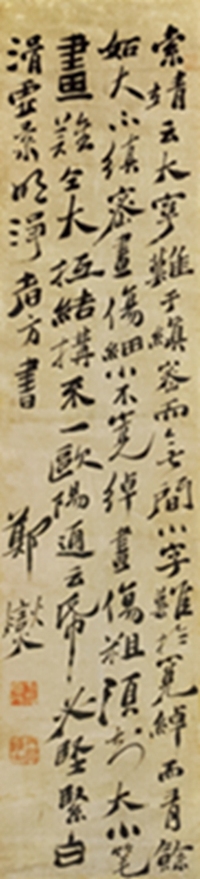 索靖云大字難于縝密而無間小字難於寬綽而有餘
如大不縝密畫傷細小不寬綽畫傷粗須知大小笔
畫兼全大抵結構不一歐陽通云帋必堅緊白
滑虛柔明淨者方書
鄭燮